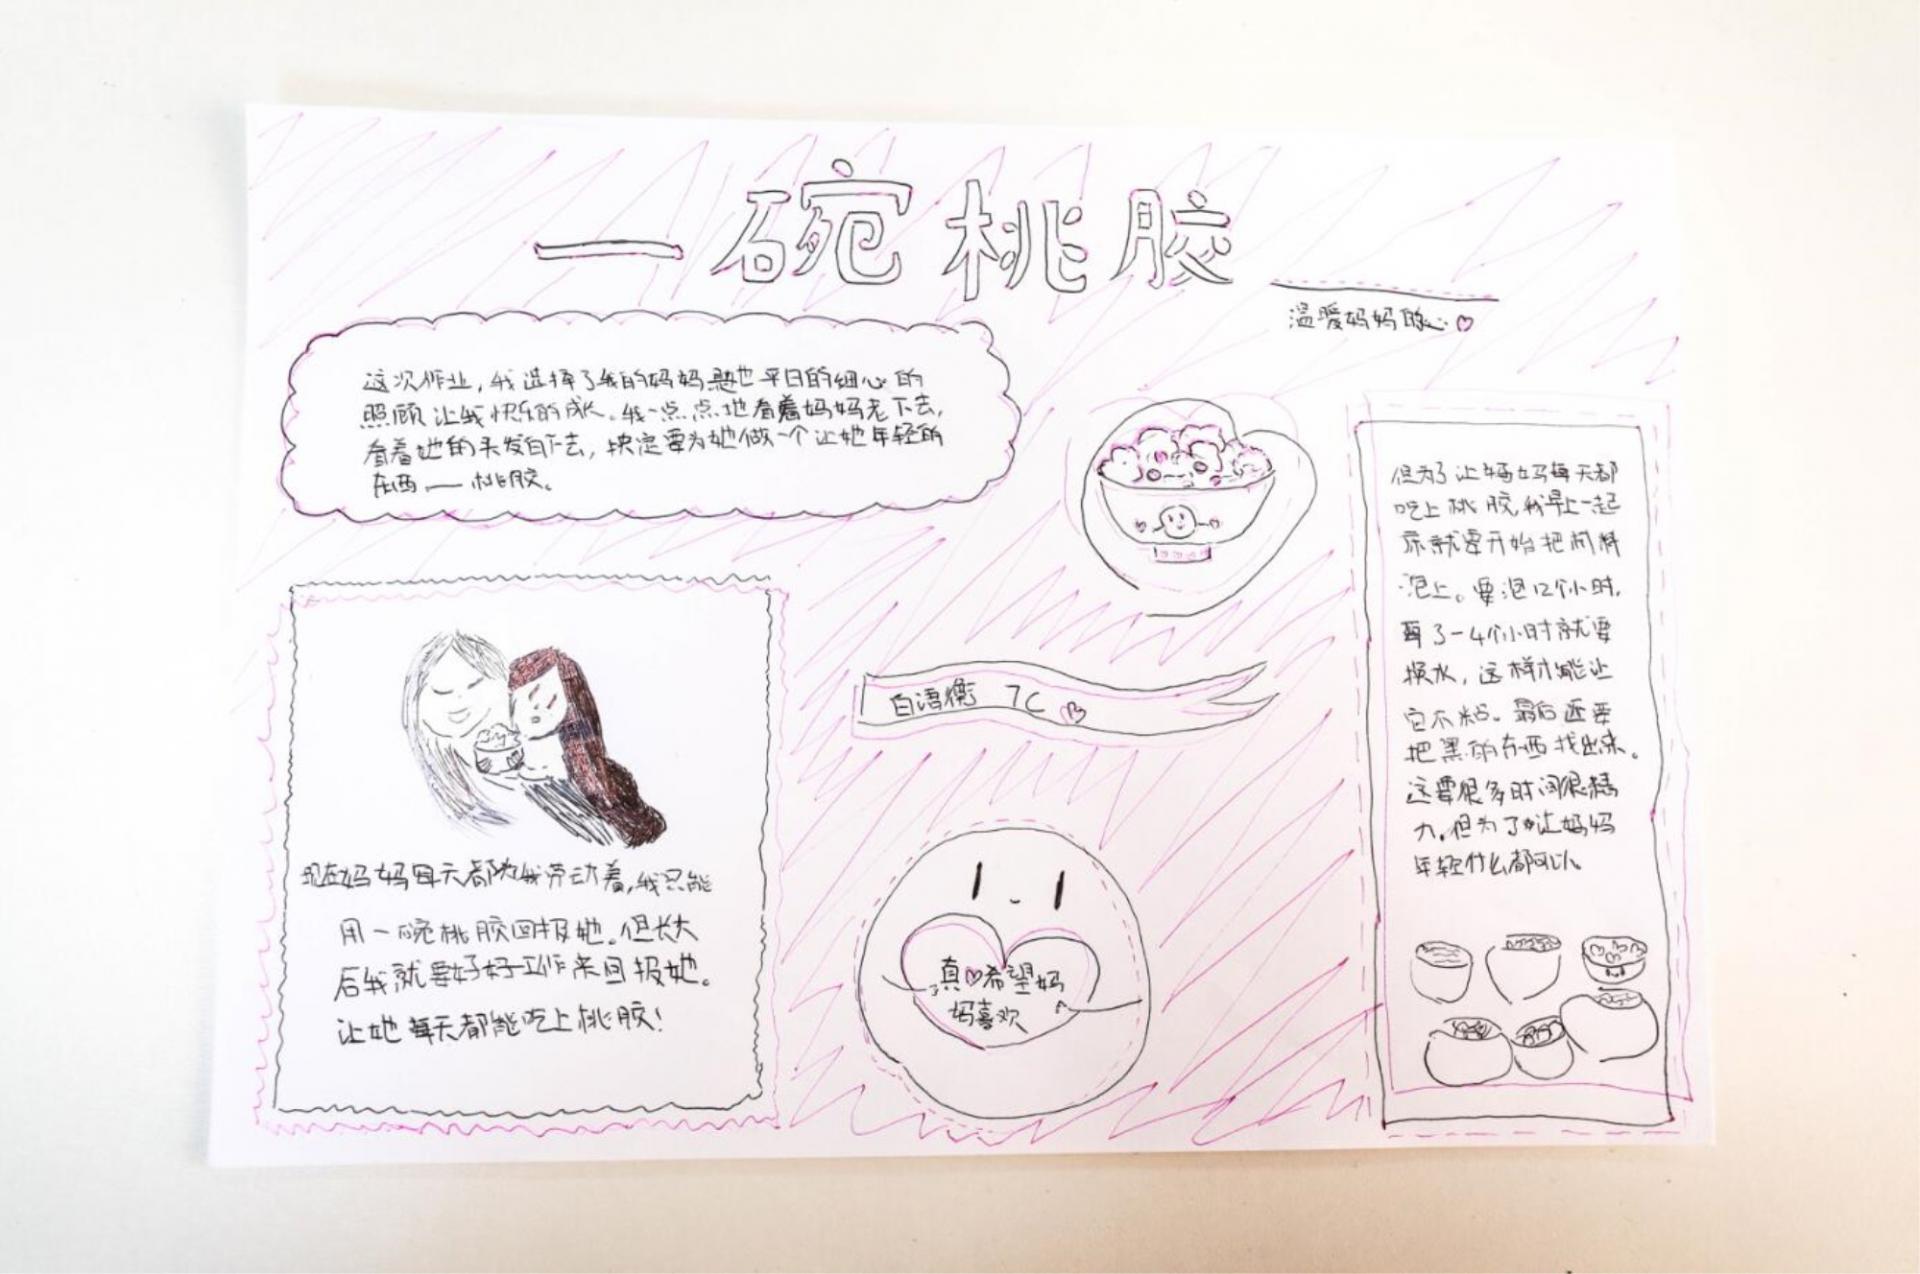 一碗桃胶
温暖妈妈的心
这次作业，我选择了我的妈妈是她平日的细心的
照顾让我快乐的成长。我一点点地看着妈妈老下去，
看着她的头发白下去，决定要为她做一个让她年轻的
东西——桃胶。
白语 7C
现在妈妈每天都为我劳动着，我只能
用一碗桃胶回报她。但长大
后我就要好好工作来回报她。
让她每天都能吃上桃胶！
真希望妈
妈喜欢
但为了让妈妈每天都
吃上桃胶，我早上一起
床就要开始把材料
泡上。要泡12个小时，
每3-4个小时就要
换水，这样才能让
它不粘。最后还要
把黑的东西找出来。
这要很多时间很精
力。但为了让妈妈
年轻什么都可以。